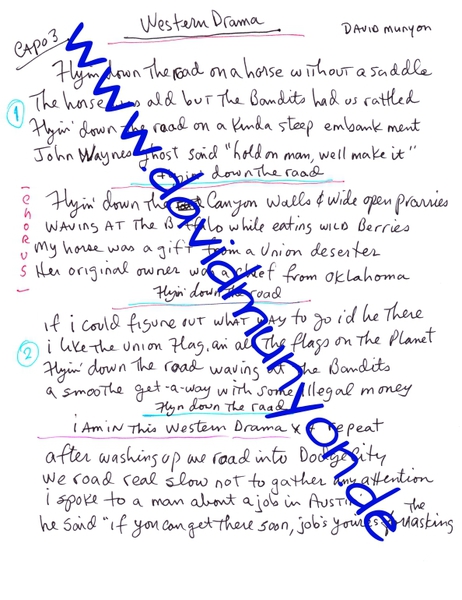 Western Drama
DAVID MUNYON
CAPO 3
Flyin' down the road on a horse without a saddle
1
The horse was old but the Bandits had us rattled
Flyin' down the road on a kinda steep embankment
John Waynes ghost said "hold on man, we'll make it"
Flyin' down the road
CHORUS
Flyin' down the Canyon walls & wide open prarries
WAVING AT THE Buffalo while eating wild Berries
My horse was a gift from a Union deserter
Her original owner was a chief from Oklahoma
Flyin' down the road
2
if i could figure out what way to go i'd be there
i like the Union Flag, an all the flags on the Planet
Flyin' down the road waving at the Bandits
a smoothe get-a-way with some illegal money
Flyn down the road
i AM IN This Western DRAMA x repeat
after washing up we road into Dodge City
we road real slow not to gather any attention
i spoke to a man about a job in Austin
he said "if you can get there soon, job's yours for The asking
www.davidmunyon.de